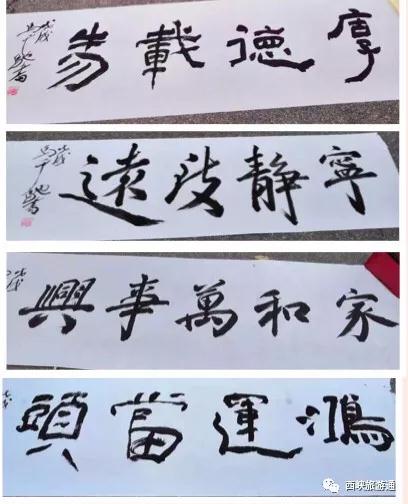 厚德載物
寧静致遠
家和萬事興
鴻運當頭
西峡旅游通